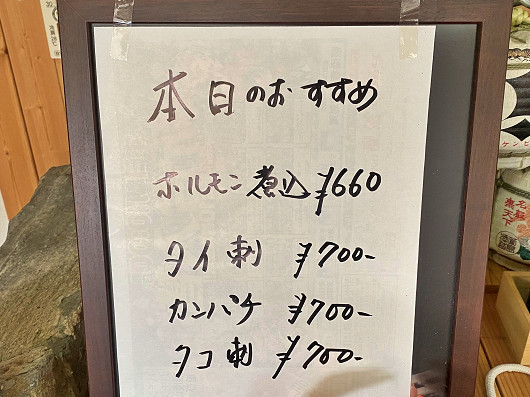 本日のおすすめ
ホルモン煮込 ¥660
タイ刺 ¥700-
カンパチ ¥700-
タコ刺 ¥700-